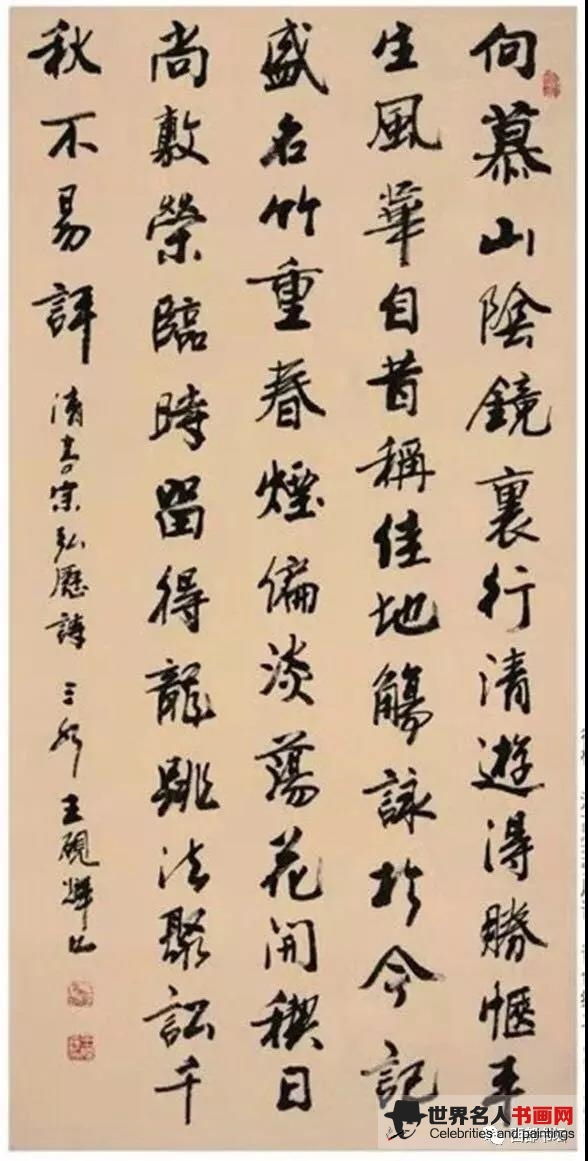 向慕山陰鏡裏行清遊得勝愜平
生風華自昔稱佳地觴詠於今記
盛名竹重春煙偏淡蕩花開禊日
尚敷榮臨時留得龍跳法聚訟千
秋不易評
清高宗弘歷詩 王硯輝書
世界名人书画网
Celebrities and paintings